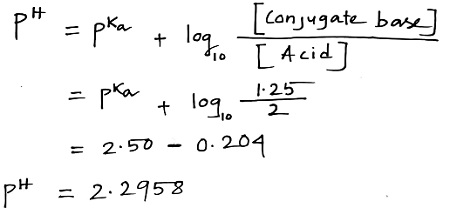 pH = pKa + log10 [Conjugate base] / [Acid]
= pKa + log10 1.25 / 2
= 2.50 - 0.204
pH = 2.2958